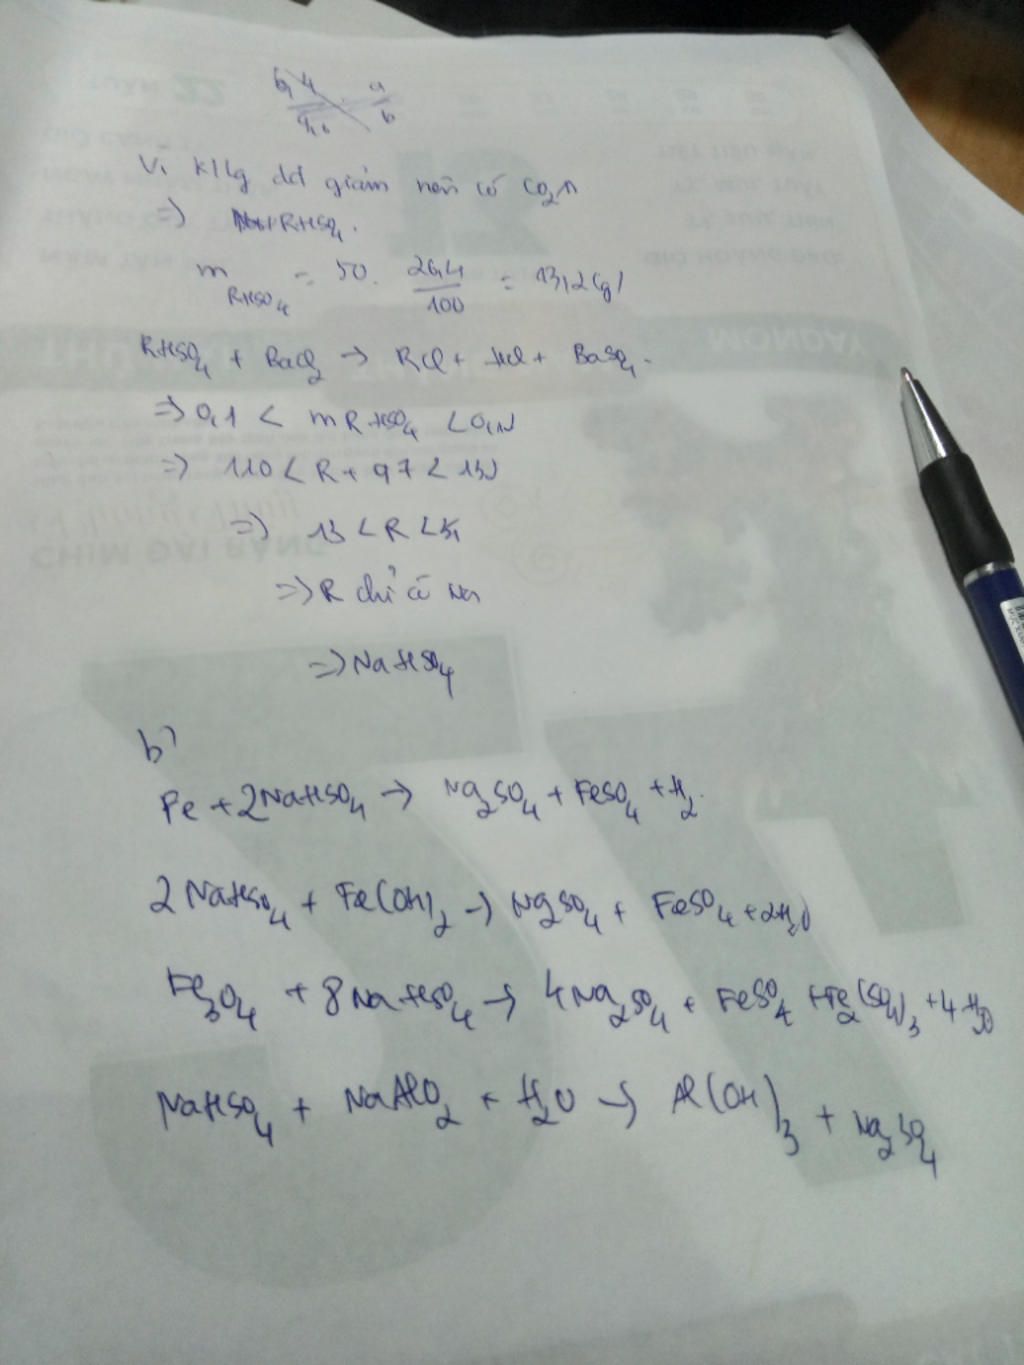 6,4 a
b
Vì klg dd giảm nên có CO2↑
=> RHSO4.
m RHSO4 = 50. 26,4/100 = 13,2(g)
RHSO4 + BaCl2 -> RCl + HCl + BaSO4.
=> 0,1 < mRHSO4 < 0,12
=> 110 < R + 97 < 132
=> 13 < R < 35
=> R chỉ có Na
=> NaHSO4
b)
Fe + 2NaHSO4 -> Na2SO4 + FeSO4 + H2.
2NaHSO4 + Fe(OH)2 -> Na2SO4 + FeSO4 + 2H2O
Fe3O4 + 8NaHSO4 -> 4Na2SO4 + FeSO4 + Fe2(SO4)3 + 4H2O
NaHSO4 + NaAlO2 + H2O -> Al(OH)3 + Na2SO4